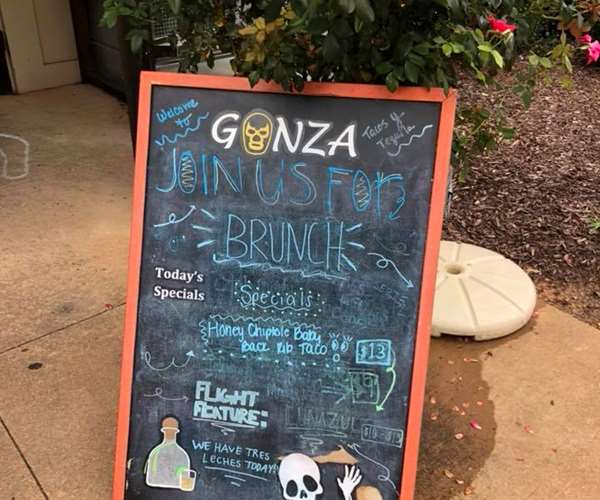 Welcome to
GONZA
Tacos y Tequila
JOIN US FOR
BRUNCH
Today's
Specials
Specials:
Honey Chiptole Baby
Back Rib Taco
$13
FLIGHT
FEATURE:
LUNAZUL
WE HAVE TRES
LECHES TODAY!